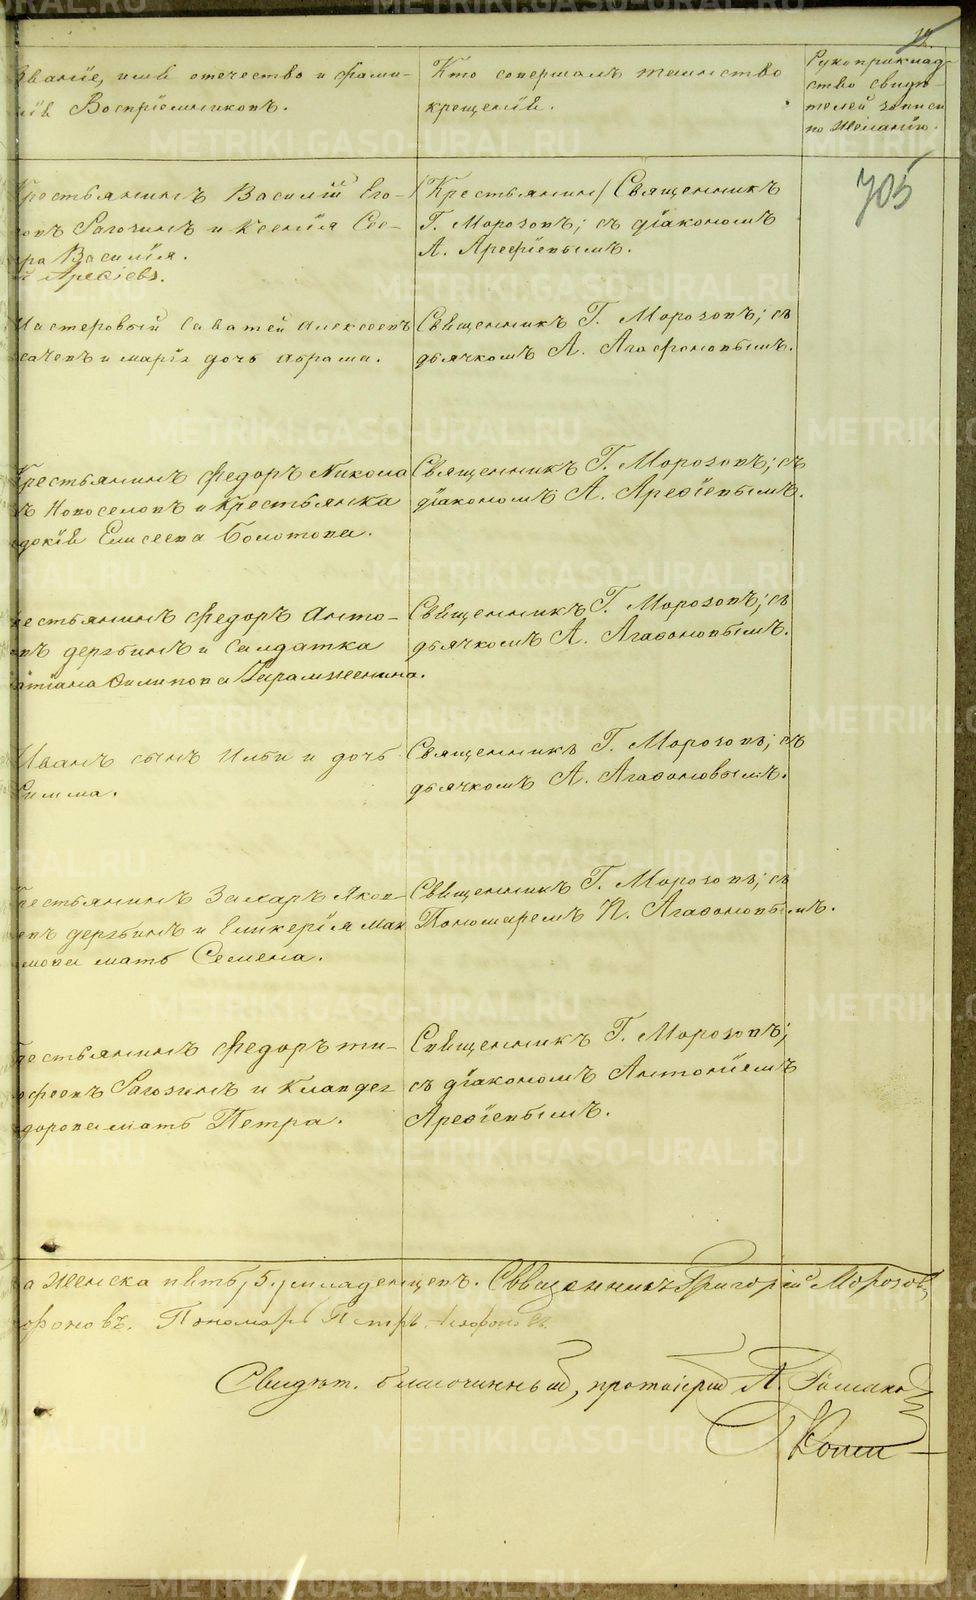 12.
Званіе, имя отечество и фами-
лія Воспріемниковъ.
Кто совершалъ таинство
крещенія.
Рукоприклад-
ство свидѣ-
телей записи
по желанію.
705
Крестьянинъ Василій Его-
ровъ Рагозинъ и Ксенія Сес-
тра Василія.
Арефіевъ.
/Крестьянин/ Священникъ
Г. Морозовъ; съ діакономъ
А. Арефіевымъ.
Мастеровый Саватей Алексеевъ
и Марія дочь Абрама.
Священникъ Г. Морозовъ; съ
дьячкомъ А. Агафоновымъ.
Крестьянинъ Федоръ Никола
въ Новоселовъ и Крестьянка
Евдокія Елисеева Болотова.
Священникъ Г. Морозовъ; съ
діакономъ А. Арефіевымъ.
Крестьянинъ Федоръ Анто-
новъ дерябинъ и Салдатка
Татіана Филипова
Священникъ Г. Морозовъ; съ
дьячкомъ А. Агафоновымъ.
Иванъ сынъ Ильи и дочь
Священникъ Г. Морозовъ; съ
дьячкомъ А. Агафоновымъ.
Крестьянинъ Захаръ Яков-
левъ дерябинъ и Гликерія Мак
симова мать Семена.
Священникъ Г. Морозовъ; съ
Пономаремъ П. Агафоновымъ.
Крестьянинъ Федоръ Ти-
мофеевъ Рагозинъ и Клавдея
Федорова мать Петра.
Священникъ Г. Морозовъ;
съ діакономъ Антоніемъ
Арефіевымъ.
а Женска пять, 5, младенцевъ. Священникъ Григорій Морозовъ
Агафоновъ. Пономарь Петръ Агафоновъ
Свидѣт. благочинный, протоіерей А.
METRIKI.GASO-URAL.RU